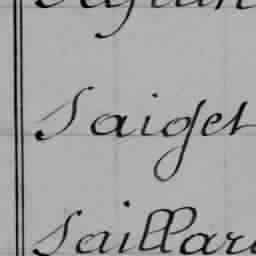 Saiget
Saillard